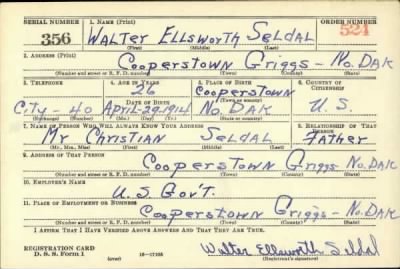 SERIAL NUMBER 1. NAME (Print) ORDER NUMBER
356 WALTER ELLSWORTH SELDAL 524
(First) (Middle) (Last)
2. ADDRESS (Print)
COOPERSTOWN GRIGGS - NO. DAK
(Number and street or R. F. D. number) (Town) (County) (State)
3. TELEPHONE 4. AGE IN YEARS 5. PLACE OF BIRTH 6. COUNTRY OF CITIZENSHIP
26 COOPERSTOWN
DATE OF BIRTH (Town or county)
CITY - 40 APRIL-28-1914 NO. DAK U. S.
(Exchange) (Number) (Mo.) (Day) (Yr.) (State or country)
7. NAME OF PERSON WHO WILL ALWAYS KNOW YOUR ADDRESS 8. RELATIONSHIP OF THAT PERSON
MR CHRISTIAN SELDAL FATHER
(Mr., Mrs., Miss) (First) (Middle) (Last)
9. ADDRESS OF THAT PERSON
COOPERSTOWN GRIGGS NO. DAK
(Number and street or R. F. D. number) (Town) (County) (State)
10. EMPLOYER'S NAME
U. S GOV'T.
11. PLACE OF EMPLOYMENT OR BUSINESS
COOPERSTOWN GRIGGS - NO. DAK
(Number and street or R. F. D. number) (Town) (County) (State)
I AFFIRM THAT I HAVE VERIFIED ABOVE ANSWERS AND THAT THEY ARE TRUE.
REGISTRATION CARD
D. S. S. Form 1 (over) 16-17105 Walter Ellsworth Seldal
(Registrant's signature)